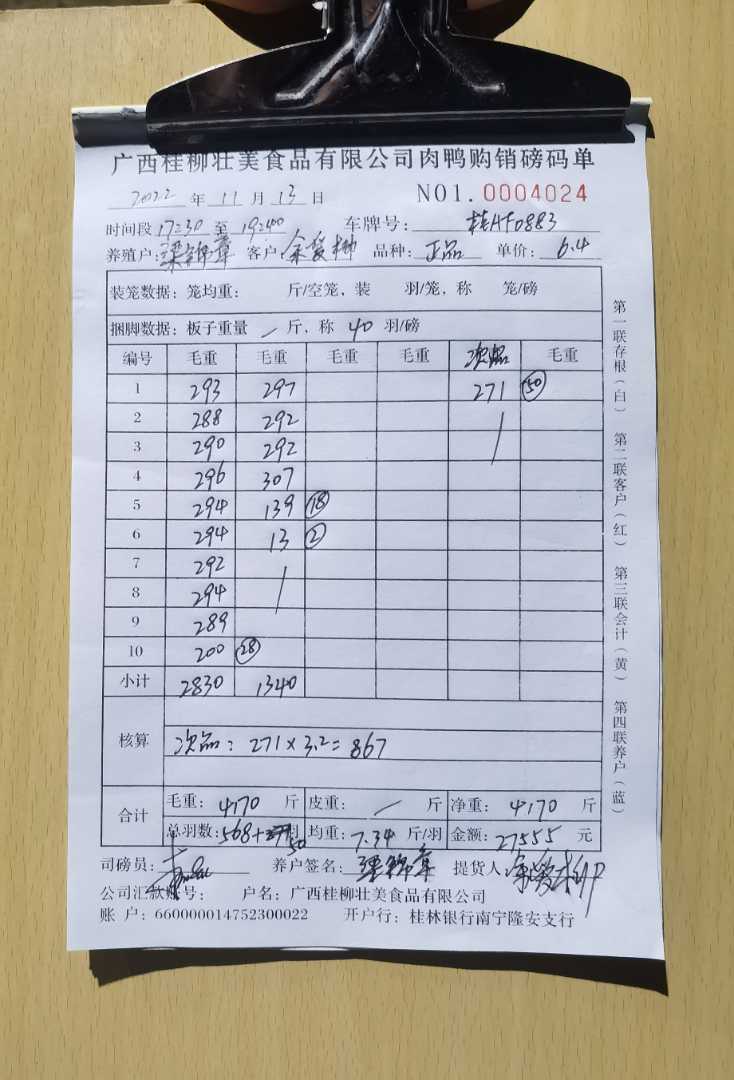 广西桂柳壮美食品有限公司肉鸭购销磅码单
2022 年 11 月 13 日 NO1. 0004024
时间段 17:30 至 19:40 车牌号: 桂AF0883
养殖户: 梁锦章 客户: 余爱林 品种: 正品 单价: 6.4
装笼数据: 笼均重: 斤/空笼, 装 羽/笼, 称 笼/磅
捆脚数据: 板子重量 / 斤, 称 40 羽/磅
编号 毛重 毛重 毛重 毛重 次品 毛重
1 293 297 271 50
2 288 292 /
3 290 292
4 296 307
5 294 139 18
6 294 13 2
7 292 /
8 294
9 289
10 200 28
小计 2830 1340
核算 次品: 271×3.2=867
合计 毛重: 4170 斤 皮重: / 斤 净重: 4170 斤
总羽数: 568+50 羽 均重: 7.34 斤/羽 金额: 27555 元
司磅员: 养户签名: 梁锦章 提货人:
公司汇款账号: 户名: 广西桂柳壮美食品有限公司
账 户: 660000014752300022 开户行: 桂林银行南宁隆安支行
第一联存根(白) 第二联客户(红) 第三联会计(黄) 第四联养户(蓝)